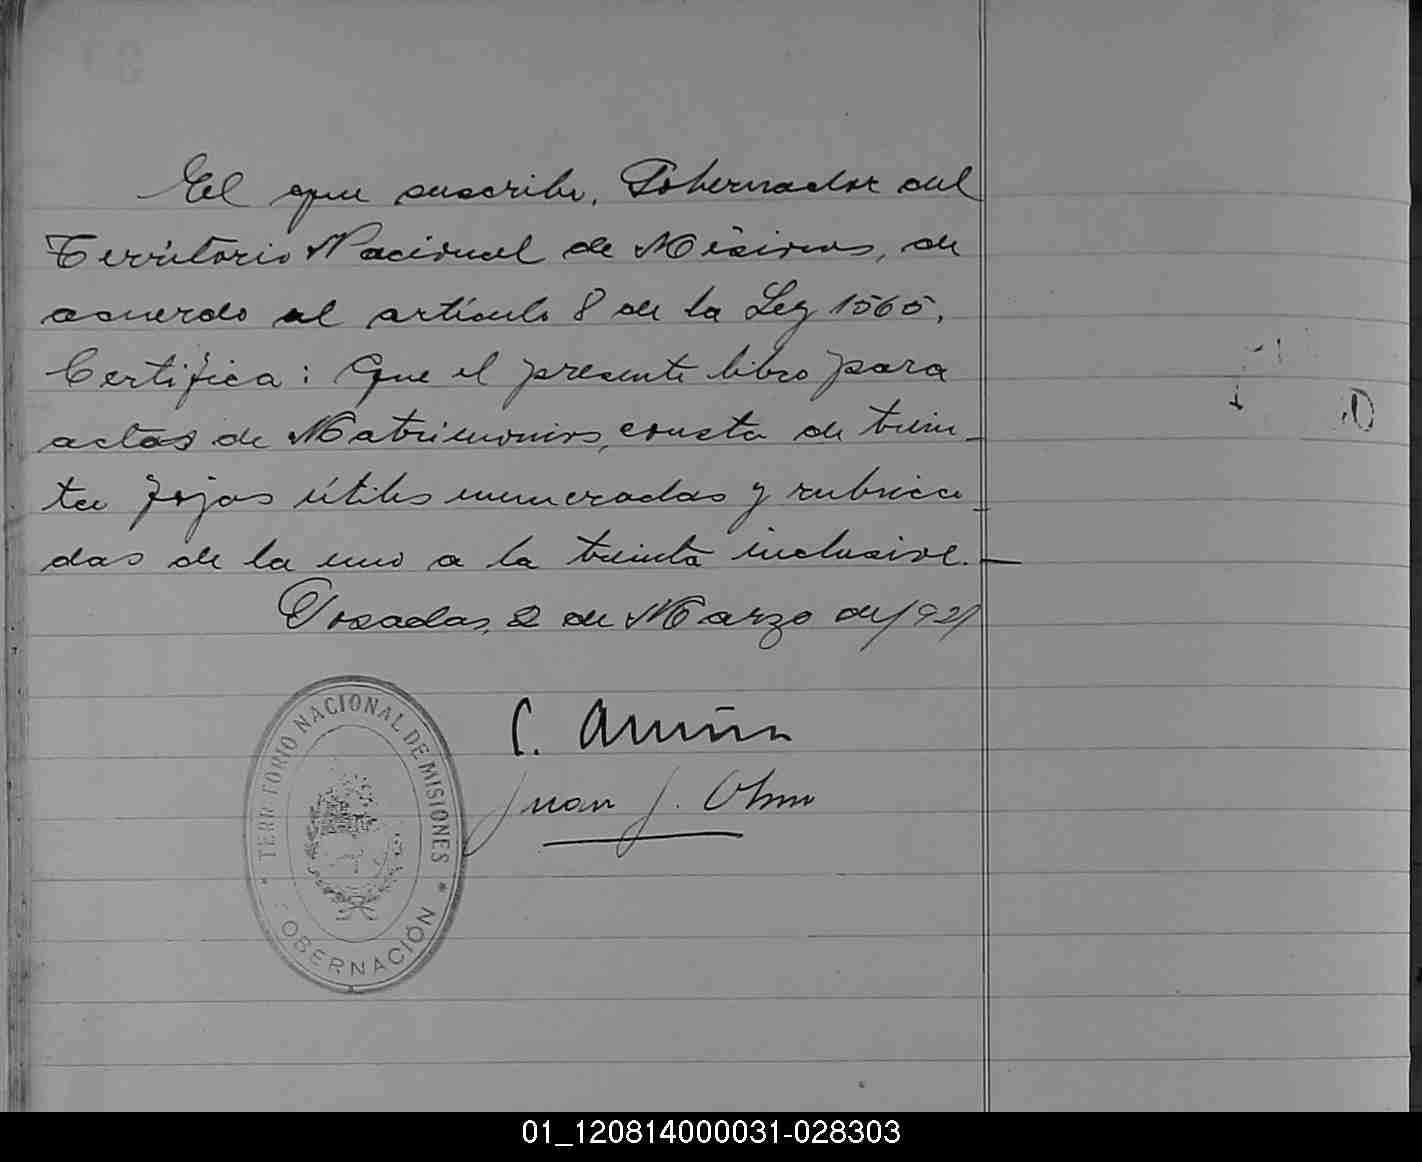 El que suscribe, Gobernador del
Territorio Nacional de Misiones, de
acuerdo al artículo 8 de la Ley 1565,
Certifica: Que el presente libro para
actas de Matrimonios, consta de trein-
ta fojas útiles enumeradas y rubrica
das de la uno a la treinta inclusive.—
Posadas, 2 de Marzo de 1921
C. Acuña
Juan J. Olmo
TERRITORIO NACIONAL DE MISIONES
OBERNACIÓN
01_120814000031-028303